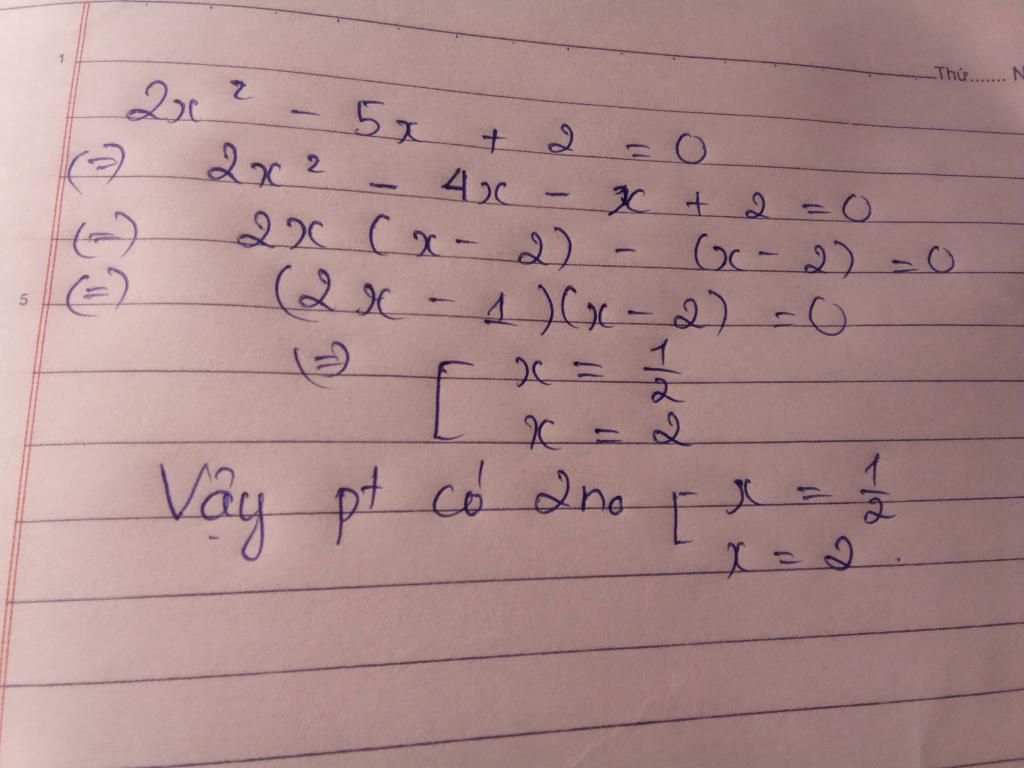 1
Thứ....... N
2x² - 5x + 2 = 0
(=) 2x² - 4x - x + 2 = 0
(=) 2x (x - 2) - (x - 2) = 0
5 (=) (2x - 1)(x - 2) = 0
(=) [ x = 1/2
x = 2
Vậy pt có 2 no [ x = 1/2
x = 2.